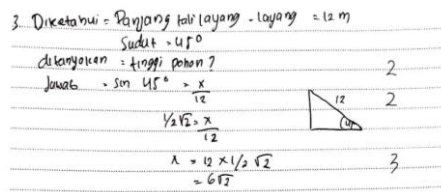 3. Diketahui = Panjang tali layang-layang = 12 m
Sudut = 45°
ditanyakan = tinggi pohon?
2
Jawab = sin 45° = x/12
12
45
2
1/2√2 = x/12
x = 12 × 1/2 √2
3
= 6√2